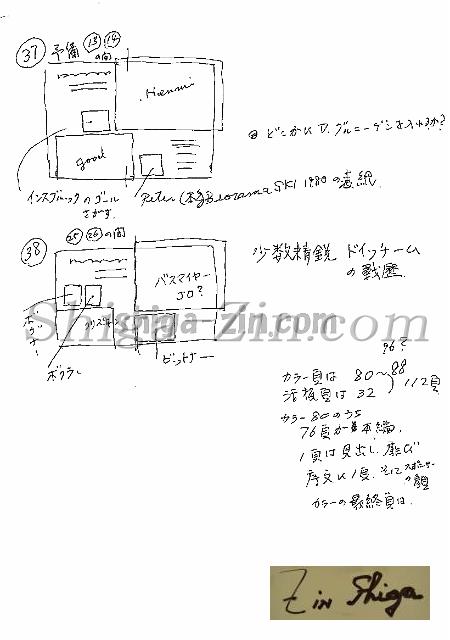 37 予備 13 14
の間
Henni
good
インスブルックのゴール
さがす
Peter (本多) SKI 1980の表紙
どこかに D.グルーニーゲンを入れるか?
38 25 26 の間
バスマイヤー
JO?
ボクラー
ビットナー
少数精鋭 ドイツチーム
の戦歴
96?
カラー頁は 80~88
活版頁は 32
112頁
カラー80のうち
76頁が本編.
1頁は見出し
序文に1頁. そして
の顔
カラーの最終頁は.
Shishiga-Zin.com
Z in Shiga